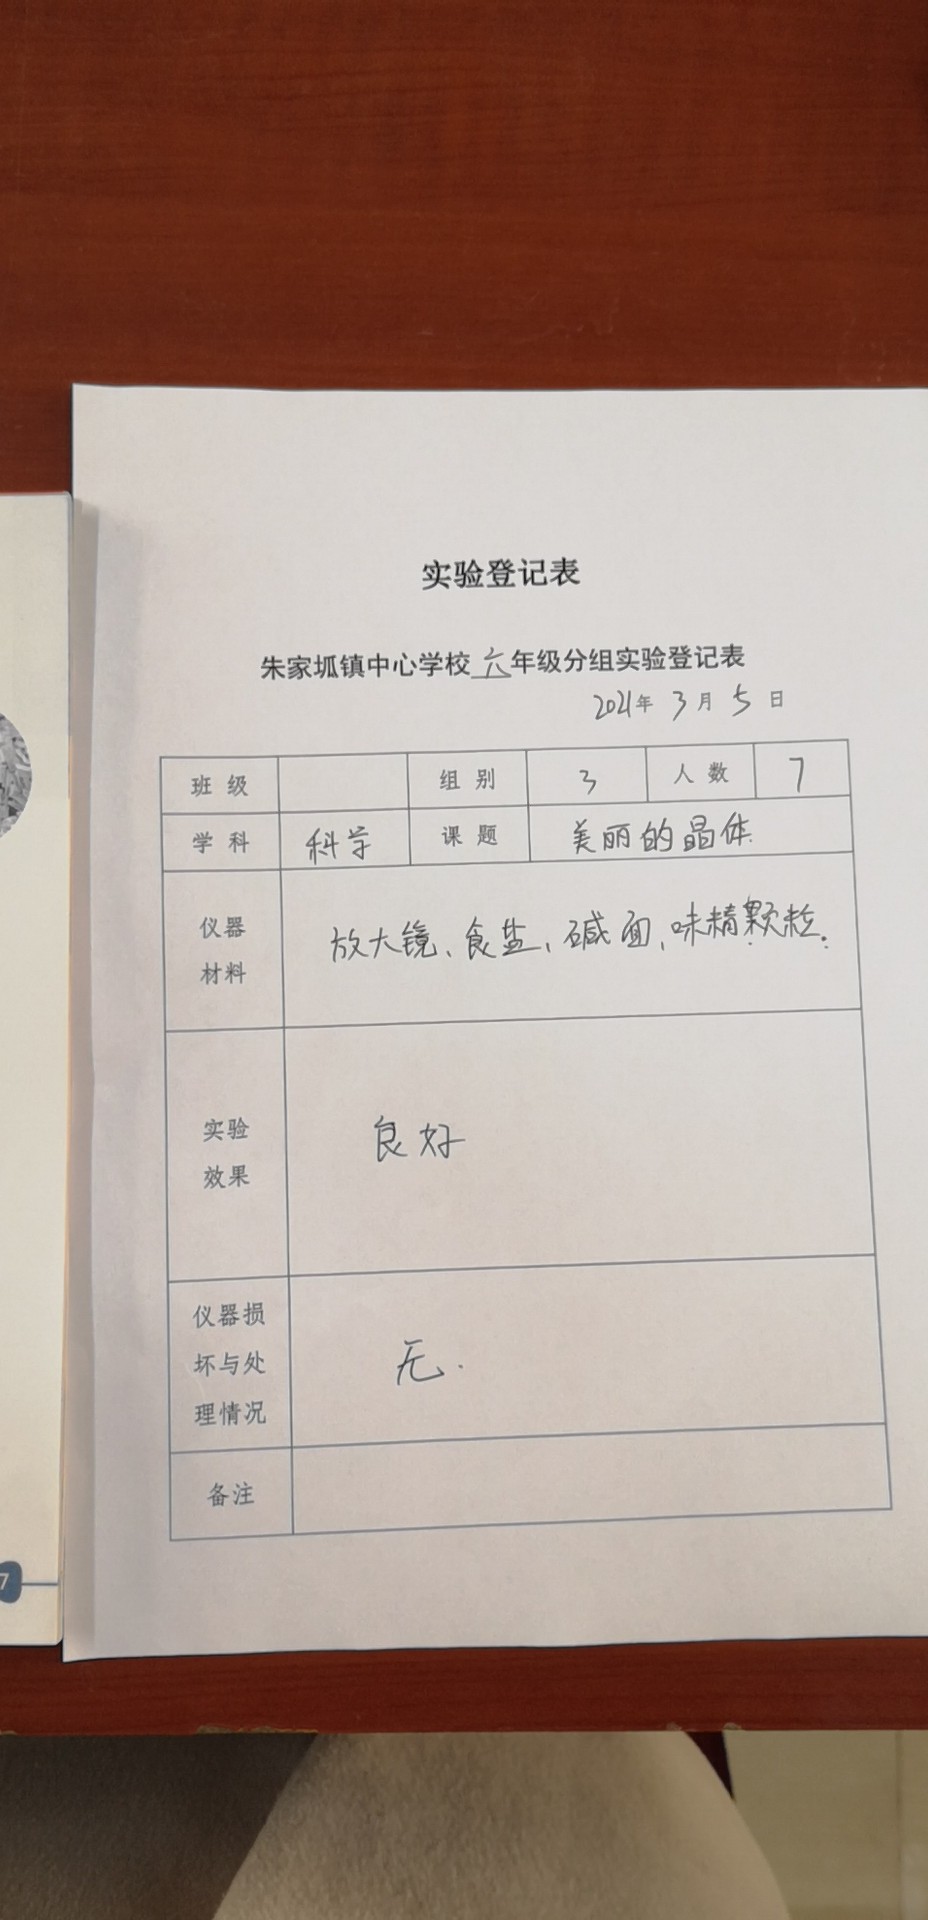 实验登记表
朱家坬镇中心学校六年级分组实验登记表
2021年 3月 5日
班级 组别 3 人数 7
学科 科学 课题 美丽的晶体
仪器
材料
放大镜、食盐、碱面、味精颗粒.
实验
效果
良好
仪器损
坏与处
理情况
无.
备注
7